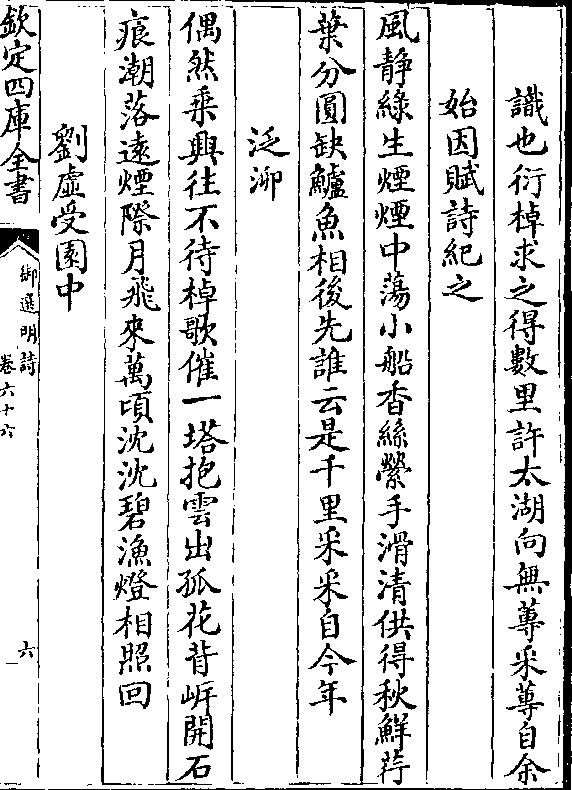 識也衍棹求之得數里許太湖向無蓴采蓴自余
始因賦詩紀之
風静綠生煙煙中蕩小船香絲縈手滑清供得秋鮮荇
葉分圓缺鱸魚相後先誰云是千里采采自今年
泛泖
偶然乗興往不待棹歌催一塔抱雲出孤花背㟁開石
痕潮落逺煙際月飛來萬頃沈沈碧漁燈相照回
劉虛受園中
欽定四庫全書
御選明詩
卷六十六
六